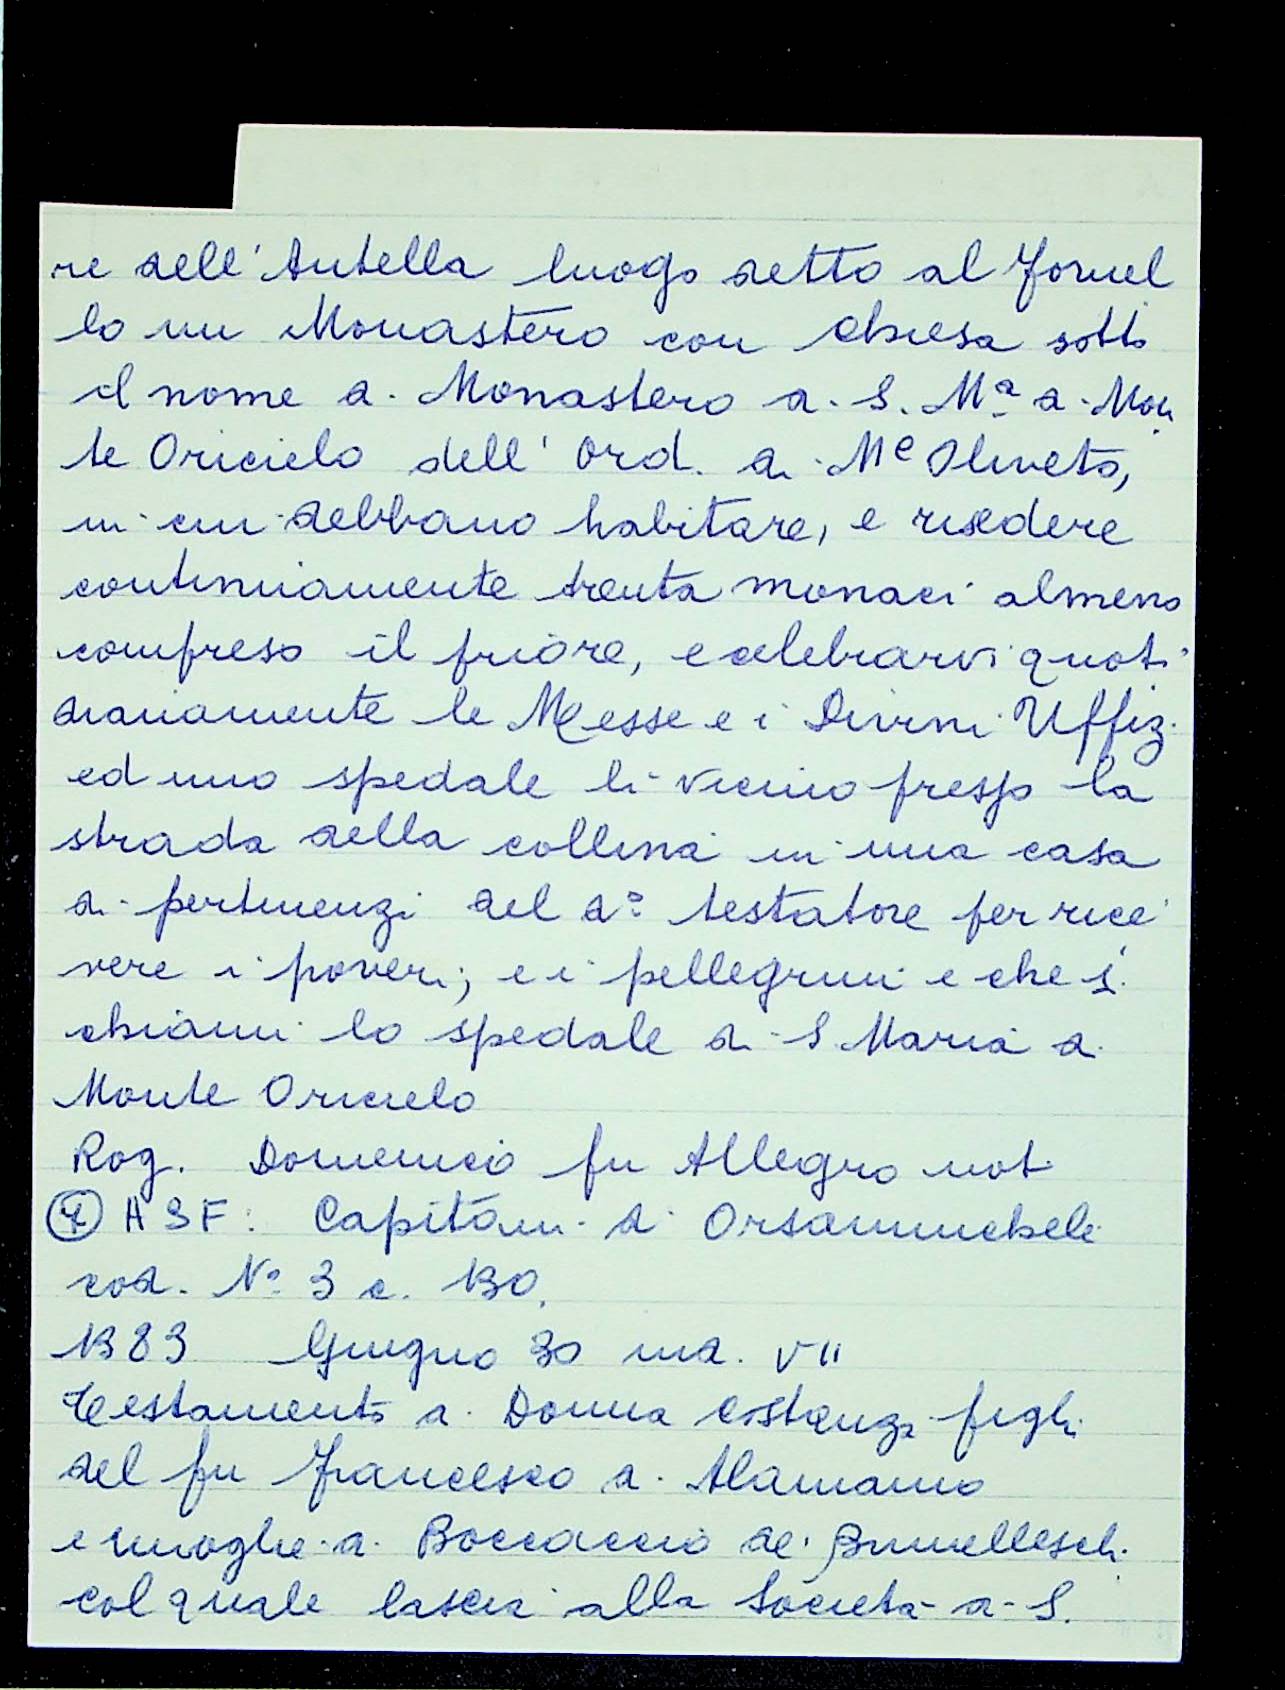 re dell'Antella luogo detto al Fornel
lo un Monastero con chiesa sotto
il nome di Monastero di S. Mª a Mon
te Oricielo dell'Ord. di Mᵉ Oliveto,
in cui debbano habitare, e risedere
continuamente trenta monaci almeno
compreso il priore, e celebrarvi quoti
dianamente le Messe e i Divini Uffizi
ed uno spedale lì vicino presso la
strada della collina in una casa
di pertinenzi del dº testatore per rice
vere i poveri; e i pellegrini e che si
chiami lo spedale di S Maria a
Monte Oricielo
Rog. Domenico fu Allegro not.
④ A S F: Capitani di Orsammichele
cod. Nº 3 c. 130.
1383 Giugno 30 ind. VII
Testamento di Donna Costanza figli
del fu Francesco di Alamanno
e moglie di Boccaccio de' Brunelleschi
col quale lascia alla Società di S.